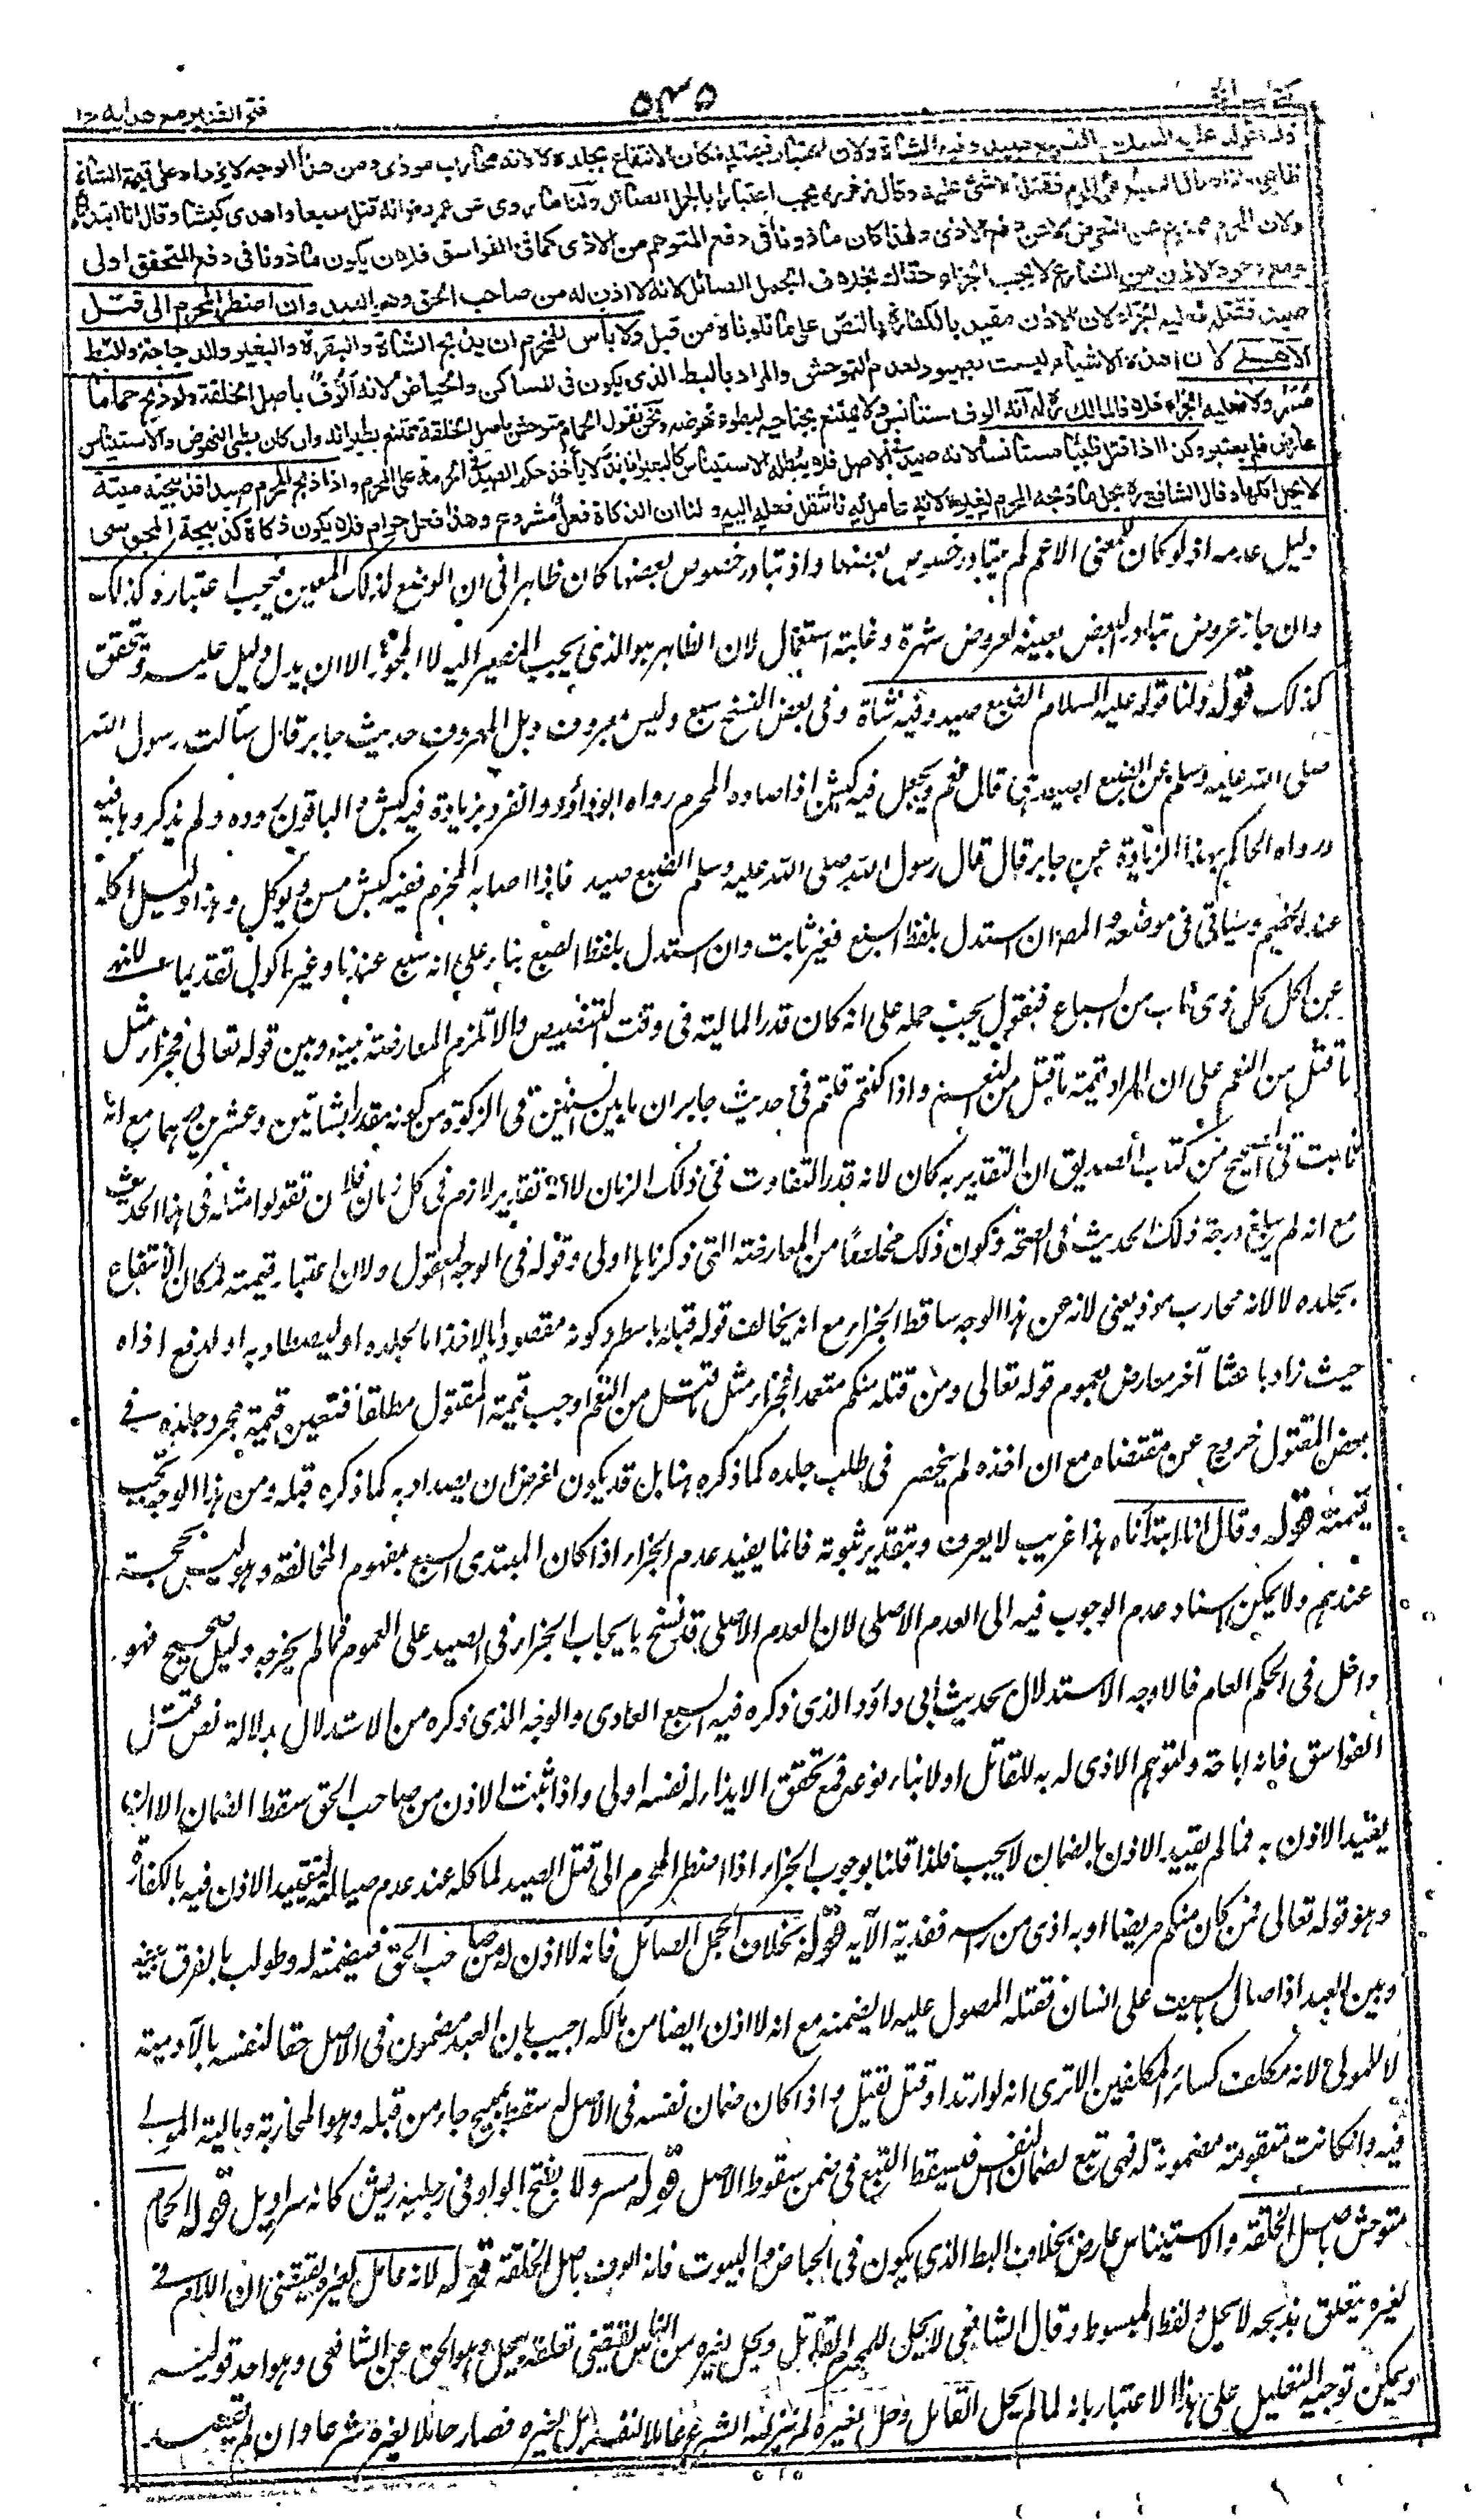 كتاب الحج
٥٣٥
فتح القدير مع هدايه ج١
قوله عليه السلام الضبع صيد وفيه الشاة ولان اعتبار قيمته لمكان الانتفاع بجلده لا لانه محارب موذى ومن هذا الوجه لا يزداد على قيمة الشاة
ظاهرا واذا صال السبع على المحرم فقتله لا شئ عليه وقال زفر يجب اعتبارا بالجمل الصائل ولنا ما روى عن عمر انه قتل سبعا واهدى كبشا وقال انا ابتدأناه
ولان المحرم ممنوع عن التعرض لا عن دفع الاذى ولهذا كان ماذونا فى دفع المتوهم من الاذى كما فى الفواسق فلان يكون ماذونا فى دفع المتحقق اولى
ومع وجود الاذن من الشارع لا يجب الجزاء حقا له بخلاف الجمل الصائل لانه لا اذن له من صاحب الحق وهو العبد وان اضطر المحرم الى قتل
صيد فقتله فعليه الجزاء لان الاذن مقيد بالكفارة بالنص على ما تلوناه من قبل ولا باس للمحرم ان يذبح الشاة والبقرة والبعير والدجاجة والبط
الاهلى لان هذه الاشياء ليست بصيود لعدم التوحش والمراد بالبط الذى يكون فى المساكن والحياض لانه الوف باصل الخلقة ولو ذبح حماما
مسرولا فعليه الجزاء خلافا لمالك له انه الوف مستانس ولا يمتنع بجناحيه لبطوء نهوضه ونحن نقول الحمام متوحش باصل الخلقة ممتنع بطيرانه وان كان بطئ النهوض والاستيناس
عارض فلم يعتبر وكذا اذا قتل ظبيا مستانسا لانه صيد فى الاصل فلا يبطله الاستيناس كالبعير اذا ند لا ياخذ حكم الصيد فى الحرمة على المحرم واذا ذبح المحرم صيدا فذبيحته ميتة
لا يحل اكلها وقال الشافعى يحل ما ذبحه المحرم لغيره لانه عامل له فانتقل فعله اليه ولنا ان الذكاة فعل مشروع وهذا فعل حرام فلا يكون ذكاة كذبيحة المجوسى
دليل عدمه اذ لو كان للمعنى الاعم لم يتبادر خصوص بعضها واذ تبادر خصوص بعضها كان ظاهرا فى ان الوضع لذلك المعين فيجب اعتباره كذلك
وان جاز عروض تبادر البعض بعينه لعروض شهرة وغلبة استعمال لان الظاهر هو الذى يجب المصير اليه لا المجوز الا ان يدل دليل عليه وتحقق
كذلك قوله ولنا قوله عليه السلام الضبع صيد وفيه شاة وفى بعض النسخ سبع وليس بمعروف وبل المعروف حديث جابر قال سألت رسول الله
صلى الله عليه وسلم عن الضبع اصيد هى قال نعم ويجعل فيه كبش اذا صاده المحرم رواه ابو داؤد وانفرد بزيادة فيه كبش والباقون رووه ولم يذكروها فيه
ورواه الحاكم بهذا الزيادة عن جابر قال قال رسول الله صلى الله عليه وسلم الضبع صيد فاذا اصابه المحرم ففيه كبش مسن ويوكل وهذا دليل اكله
عند الخصم وسياتى فى موضعه والمص ان استدل بلفظ السبع فغير ثابت وان استدل بلفظ الضبع بناء على انه سبع عندنا وغير ماكول تقديما للنهى
عن اكل كل ذى ناب من السباع فنقول يجب حمله على انه كان قدر المالية فى وقت التنصيص والا لزم المعارضة بينه وبين قوله تعالى فجزاء مثل
ما قتل من النعم على ان المراد قيمة ما قتل من النعم واذا كنتم قلتم فى حديث جابر ان ما بين السنين فى الزكوة من كونه مقدرا بشاتين وعشرين درهما مع انه
ثابت فى الصحيح من كتاب الصديق ان التقدير به كان لانه قدر التفاوت فى ذلك الزمان لا انه تقدير لازم فى كل زمان فلان تقولوا مثله فى هذا الحديث
مع انه لم يبلغ درجة ذلك الحديث فى الصحة وكون ذلك مخلصا من المعارضة التى ذكرناها اولى وقوله فى الوجه المعقول ولان اعتبار قيمته لمكان الانتفاع
بجلده لا لانه محارب موذ يعنى لانه من هذا الوجه ساقط الجزاء مع انه يخالف قوله قبله باسطر وكونه مقصودا بالاخذ اما لجلده او ليصطاد به او لدفع اذاه
حيث زاد باعثا آخر معارض بعموم قوله تعالى ومن قتله منكم متعمدا فجزاء مثل ما قتل من النعم اوجب قيمة المقتول مطلقا فتعيين قيمة مجرد جلده فى
بعض المقتول خروج عن مقتضاه مع ان اخذه لم ينحصر فى طلب جلده كما ذكره هنا بل قد يكون لغرض ان يصطاد به كما ذكره قبله ومن هذا الوجه تجب
قيمته قوله وقال انا ابتدأناه هذا غريب لا يعرف وبتقدير ثبوته فانما يفيد عدم الجزاء اذا كان المبتدى السبع بمفهوم المخالفة وهو ليس بحجة
عندهم ولا يمكن اسناد عدم الوجوب فيه الى العدم الاصلى لان العدم الاصلى قد نسخ بايجاب الجزاء فى الصيد على العموم فما لم يخرجه دليل صحيح فهو
داخل فى الحكم العام فالاوجه الاستدلال بحديث ابى داود الذى ذكره فيه السبع العادى والوجه الذى ذكره من الاستدلال بدلالة نص قتل
الفواسق فانه اباحة ولتوهم الاذى له به للقاتل او لابناء نوعه فمع تحقق الايذاء له نفسه اولى واذا ثبت الاذن من صاحب الحق سقط الضمان الا ان
يقيد الاذن به فما لم يقيد الاذن بالضمان لا يجب فلذا قلنا بوجوب الجزاء اذا اضطر المحرم الى قتل الصيد لماكله عند عدم صياله لتقييد الاذن فيه بالكفارة
وهو قوله تعالى فمن كان منكم مريضا او به اذى من راسه ففدية الآية قوله بخلاف الجمل الصائل فانه لا اذن له من صاحب الحق فيضمنه له وطولب بالفرق بينه
وبين العبد اذا صال بالسيف على انسان فقتله المصول عليه لا يضمنه مع انه لا اذن ايضا من مالكه اجيب بان العبد مضمون فى الاصل حقا لنفسه بالآدمية
لا للمولى لانه مكلف كسائر المكلفين الا ترى انه لو ارتد او قتل يقتل واذا كان ضمان نفسه فى الاصل له سقط بمبيح جاء من قبله وهو المحاربة ومالية المولى
فيه وان كانت متقومة مضمونة له فهى تبع لضمان النفس فيسقط التبع فى ضمن سقوط الاصل قوله مسرولا بفتح الواو فى رجليه ريش كانه سراويل قوله الحمام
متوحش باصل الخلقة والاستيناس عارض بخلاف البط الذى يكون فى الحياض والبيوت فانه الوف باصل الخلقة قوله لانه عامل لغيره يقتضى ان اللام فى
لغيره يتعلق بذبحه لا بيحل ولفظ المبسوط وقال الشافعى لا يحل للمحرم القاتل ويحل لغيره من الناس يقتضى تعلقه بيحل وهو الحق عن الشافعى وهو احد قوليه
ويمكن توجيه التعليل على هذا الاعتبار بانه لما لم يحل القاتل وحل لغيره لم ينزله الشرع عاملا لنفسه بل لغيره فصار حاملا لغيره شرعا وان لم يقصد